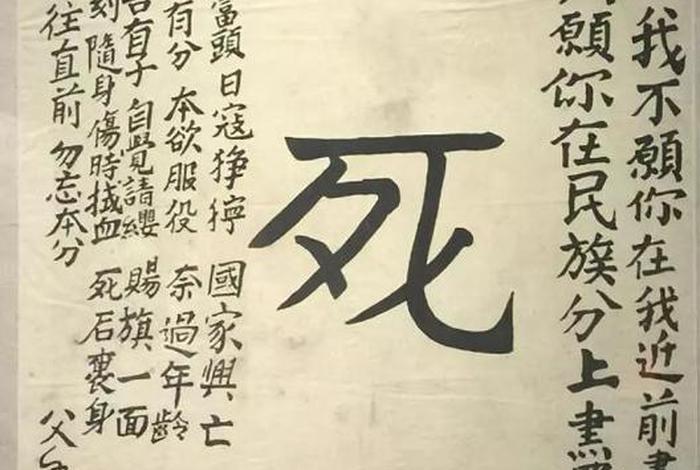 我不願你在我近前
願你在民族分上盡
死
當頭 日寇猙獰 國家興亡
有分 本欲服役 奈過年齡
吾有子 自覺請纓 賜旗一面
刻隨身 傷時拭血 死后裹身
往直前 勿忘本分 父